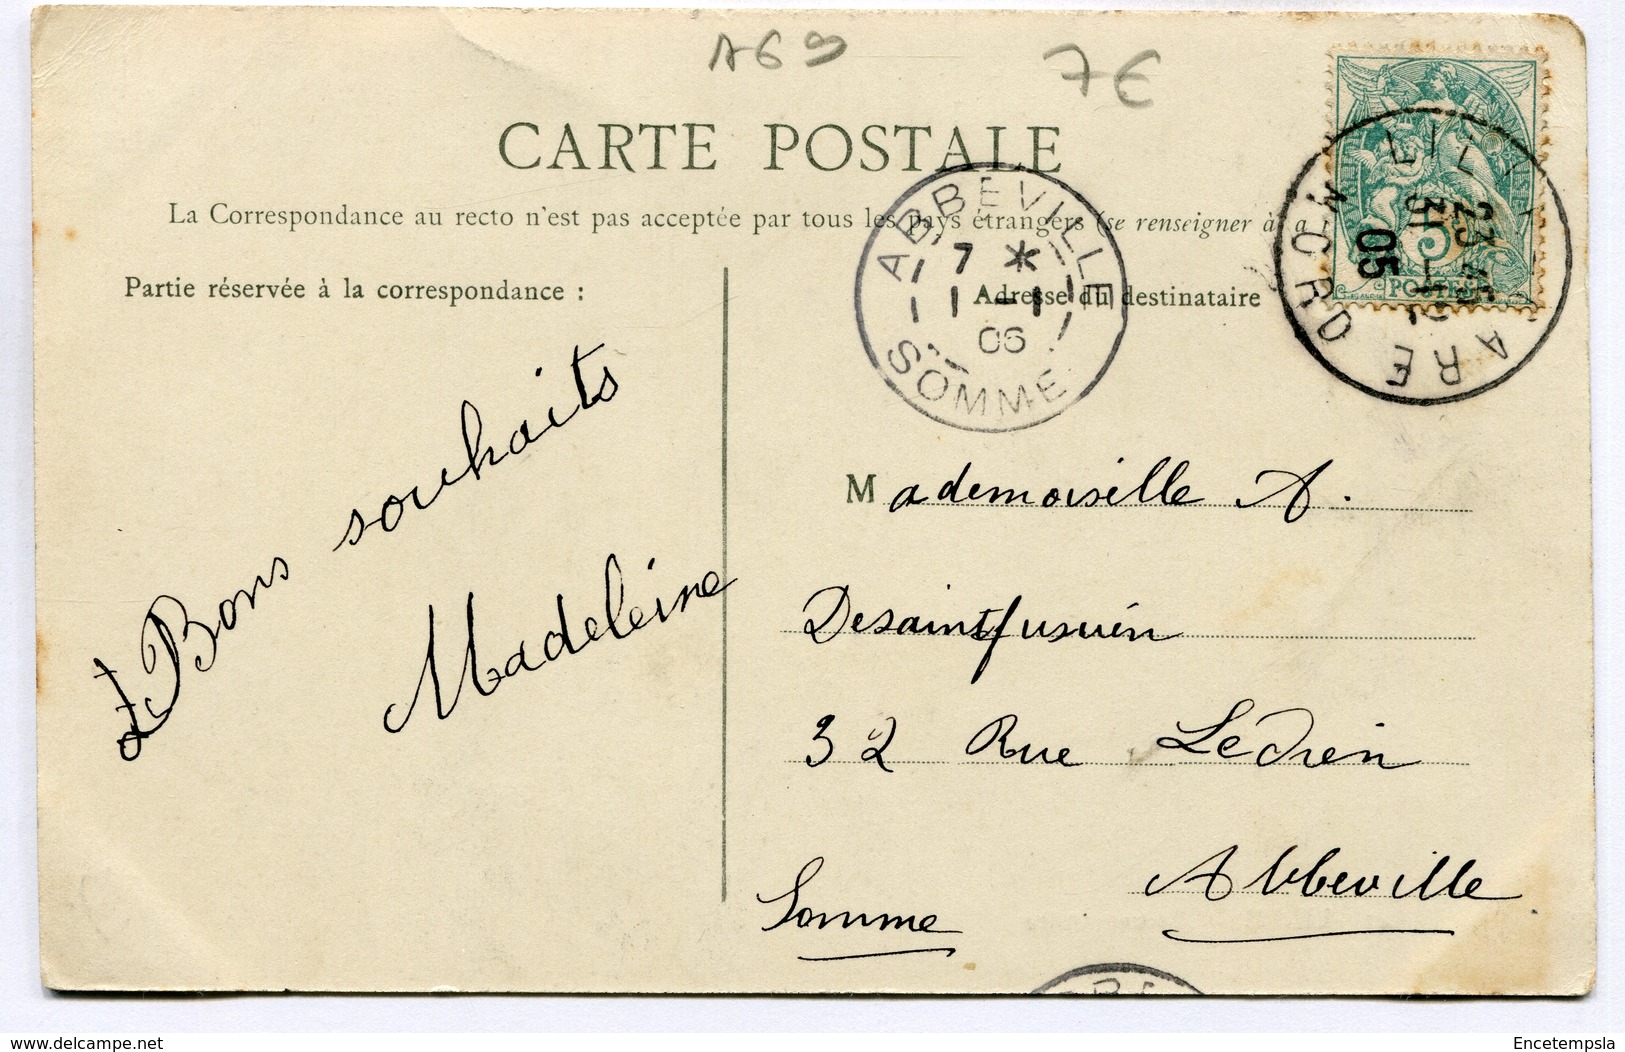 A69
7€
CARTE POSTALE
La Correspondance au recto n'est pas acceptée par tous les pays étrangers (se renseigner à a
Partie réservée à la correspondance :
Adresse du destinataire
ABBEVILLE
7 *
1 - 1
06
SOMME
LILL
ARE
NORD
23
31
05
5
POSTES
Bons souhaits
Madeleine
Mademoiselle A.
Desaint
32 Rue Ledien
Abbeville
Somme
delcampe.net
Encetempsla